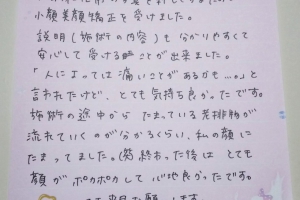 小顔美顔矯正を受けました。
説明(施術の内容)も分かりやすくて
安心して受けることが出来ました。
「人によっては痛いことがあるかも…。」と
言われたけど、とても気持ち良かったです。
施術の途中から たまっている老排物が
流れていくのが分かるくらい、私の顔に
たまってました。(笑) 終わった後は とても
顔がポカポカして心地良かったです。
お願いします。